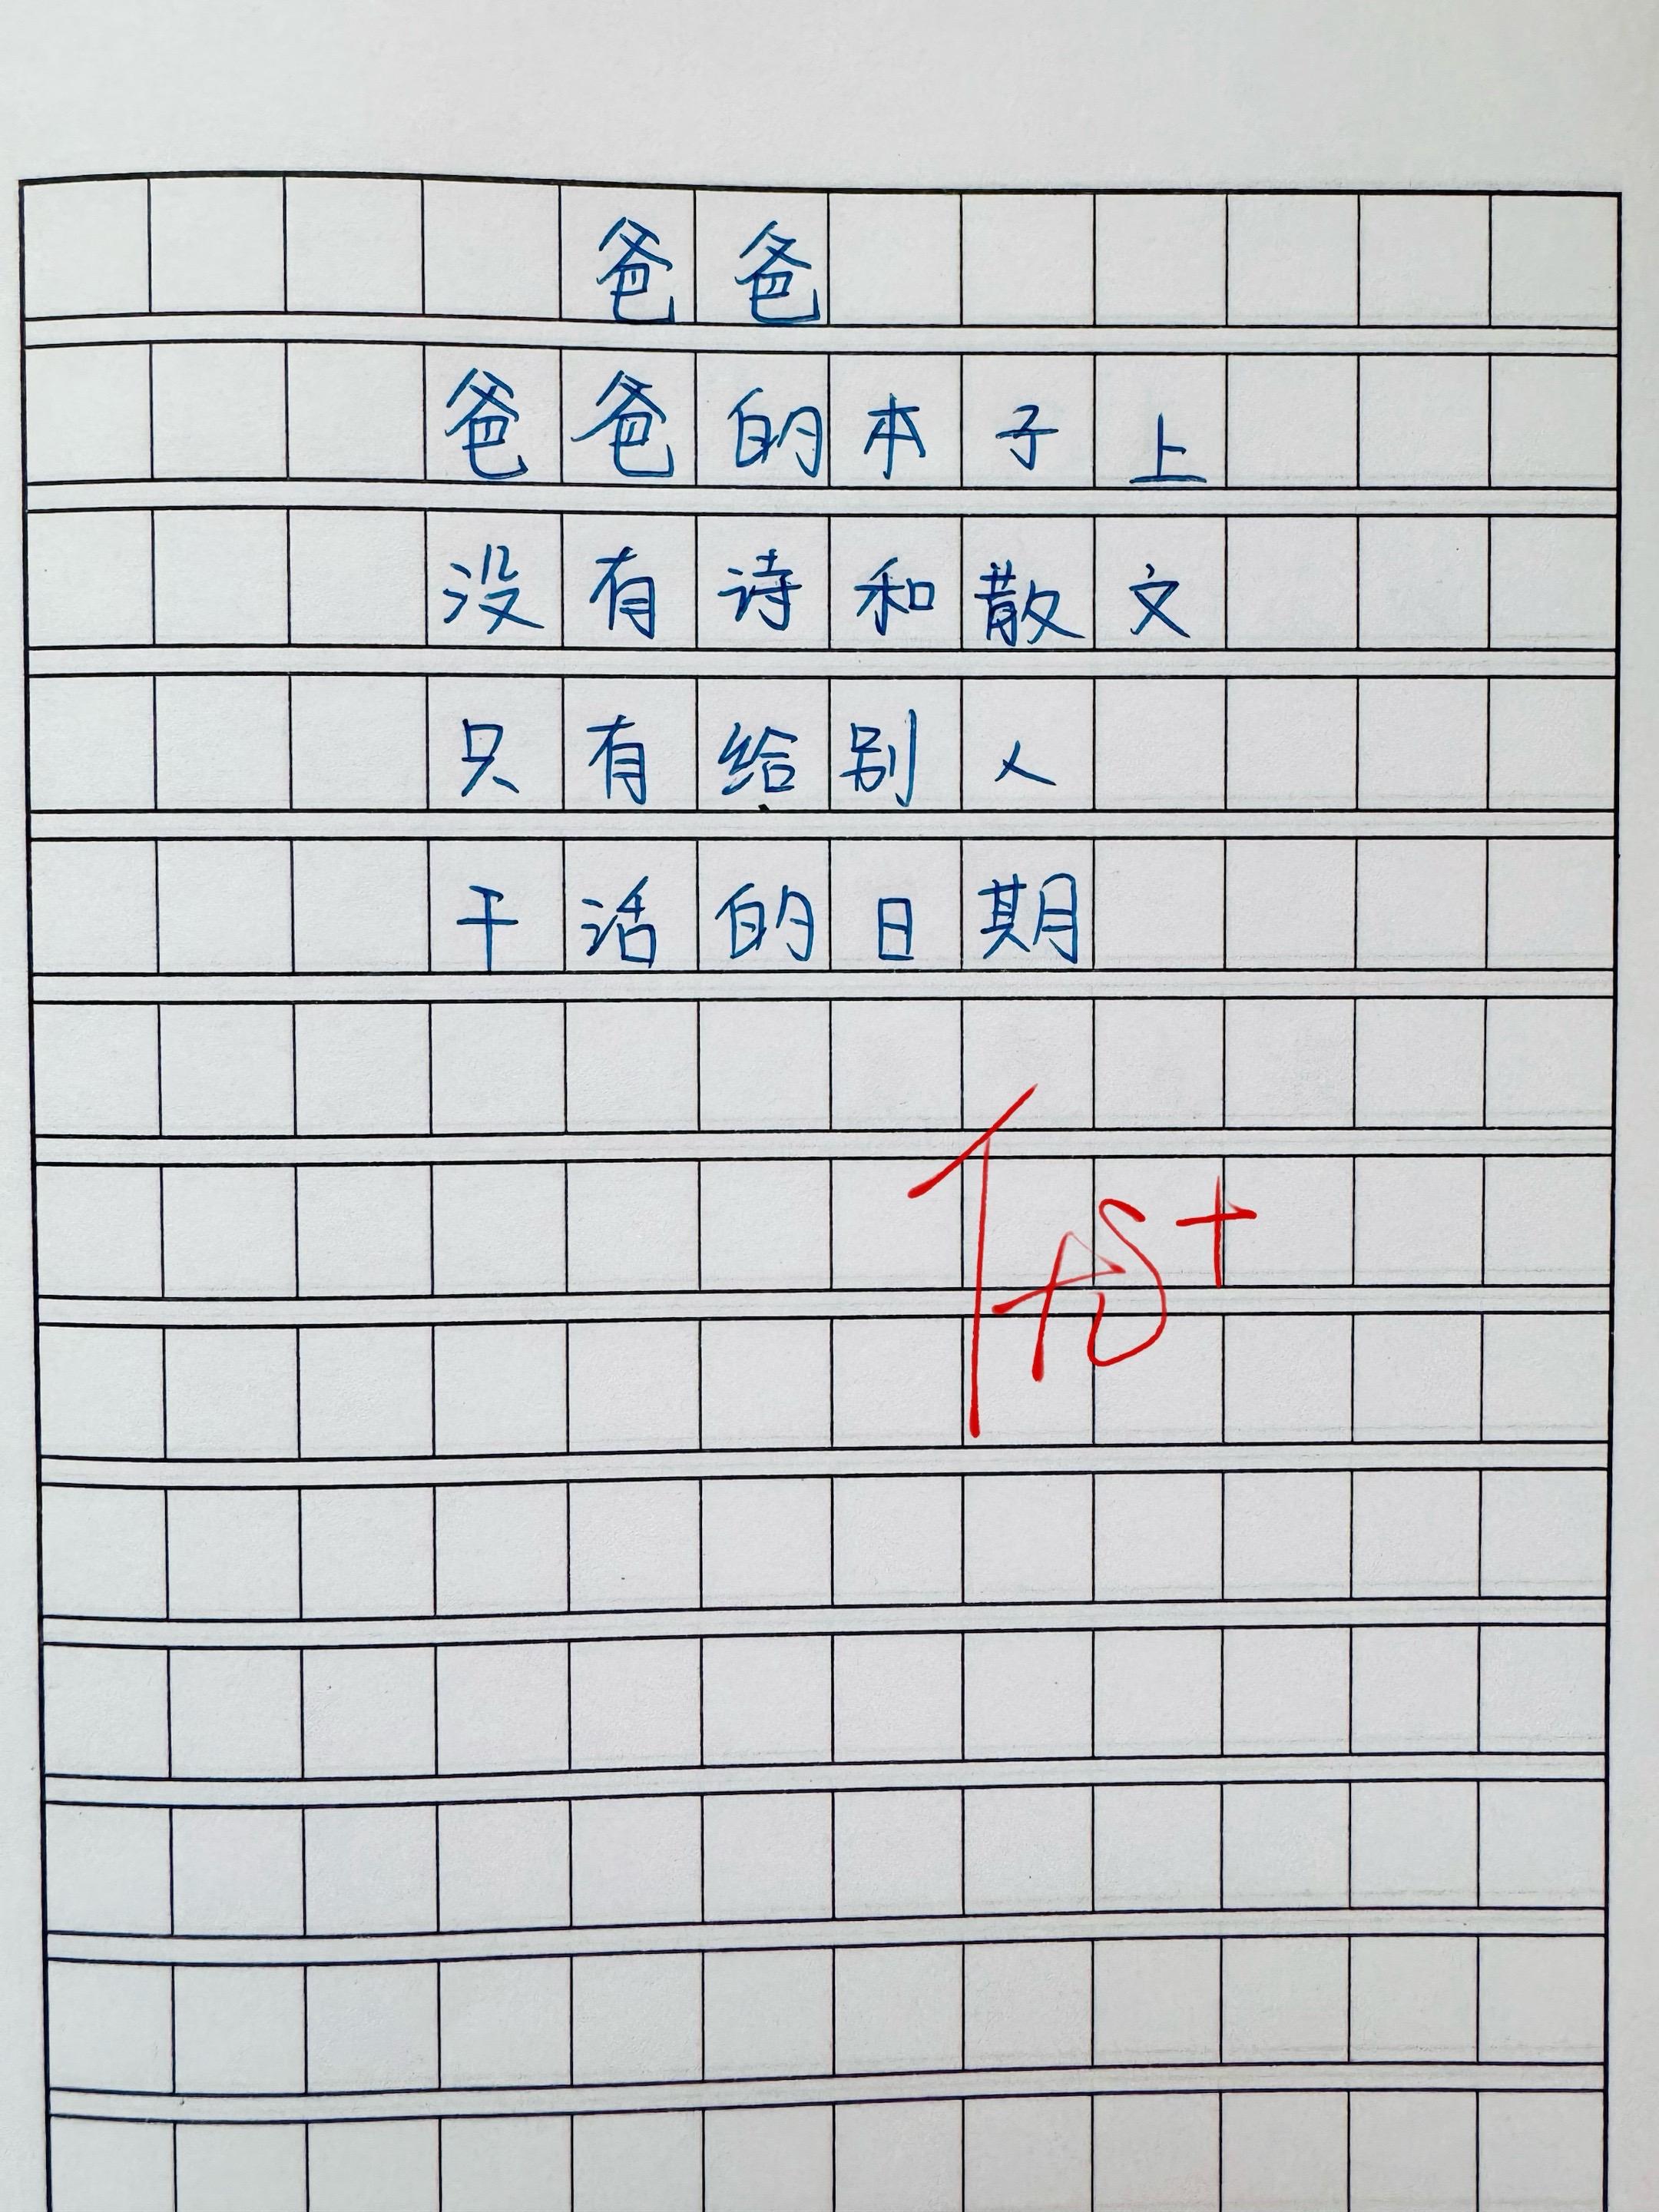 爸爸
爸爸的本子上
没有诗和散文
只有给别人
干活的日期